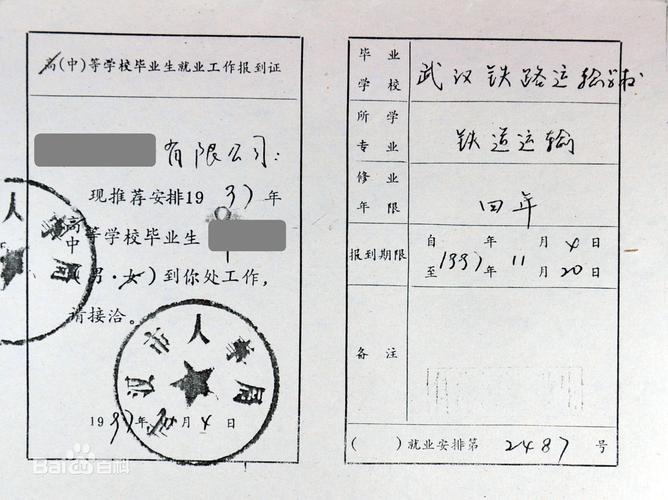 高(中)等学校毕业生就业工作报到证
有限公司:
现推荐安排1997年
高
中等学校毕业生
(男·女)到你处工作,
请接洽。
汉市人事局
1997年 月4日
毕业学校
武汉铁路运输学校
所学专业
铁道运输
修业年限
四年
报到期限
自 年 月4日
至1997年11月20日
备注
( )就业安排第2487号
人事
Baidu百科